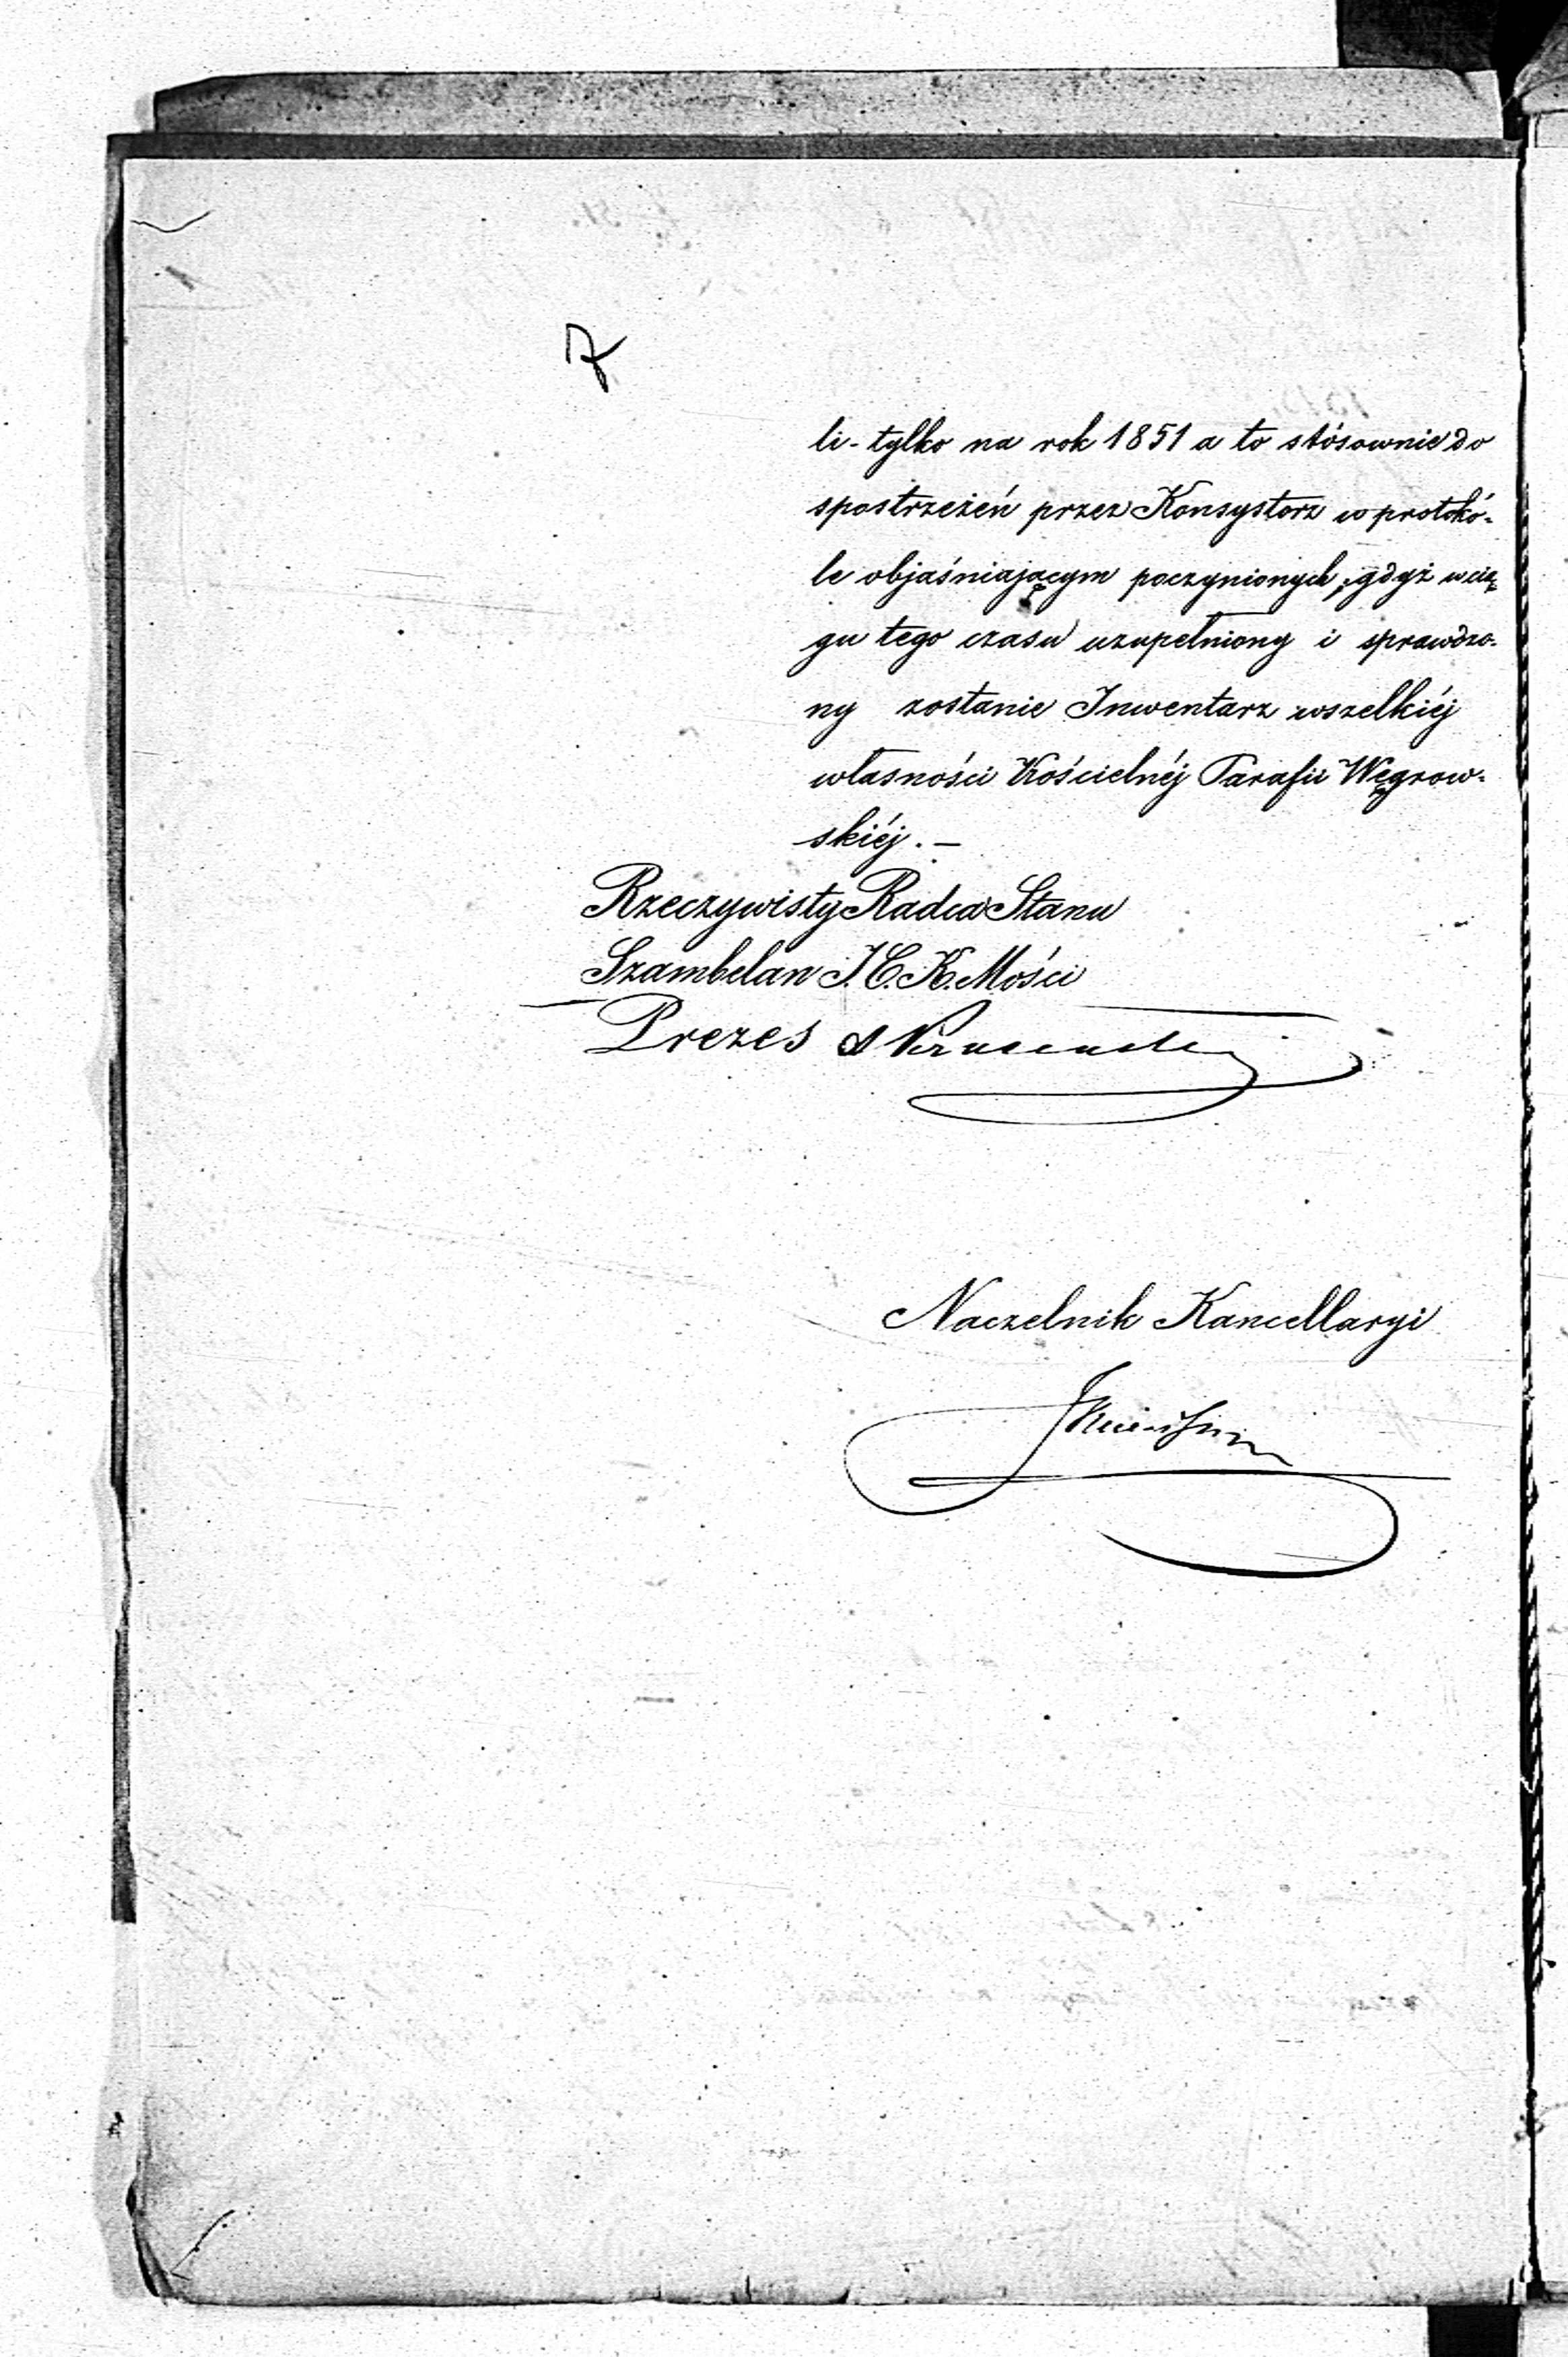 7
li-tylko na rok 1851 a to stósownie do
spostrzeżeń przez Konsystorz w protokó-
le objaśniającym poczynionych, gdyż w cią-
gu tego czasu uzupełniony i sprawdzo-
ny zostanie Inwentarz wszelkiéj
własności Kościelnéj Parafii Węgrow-
skiéj. —
Rzeczywisty Radca Stanu
Szambelan J. C. K. Mości
Prezes
Naczelnik Kancellaryi